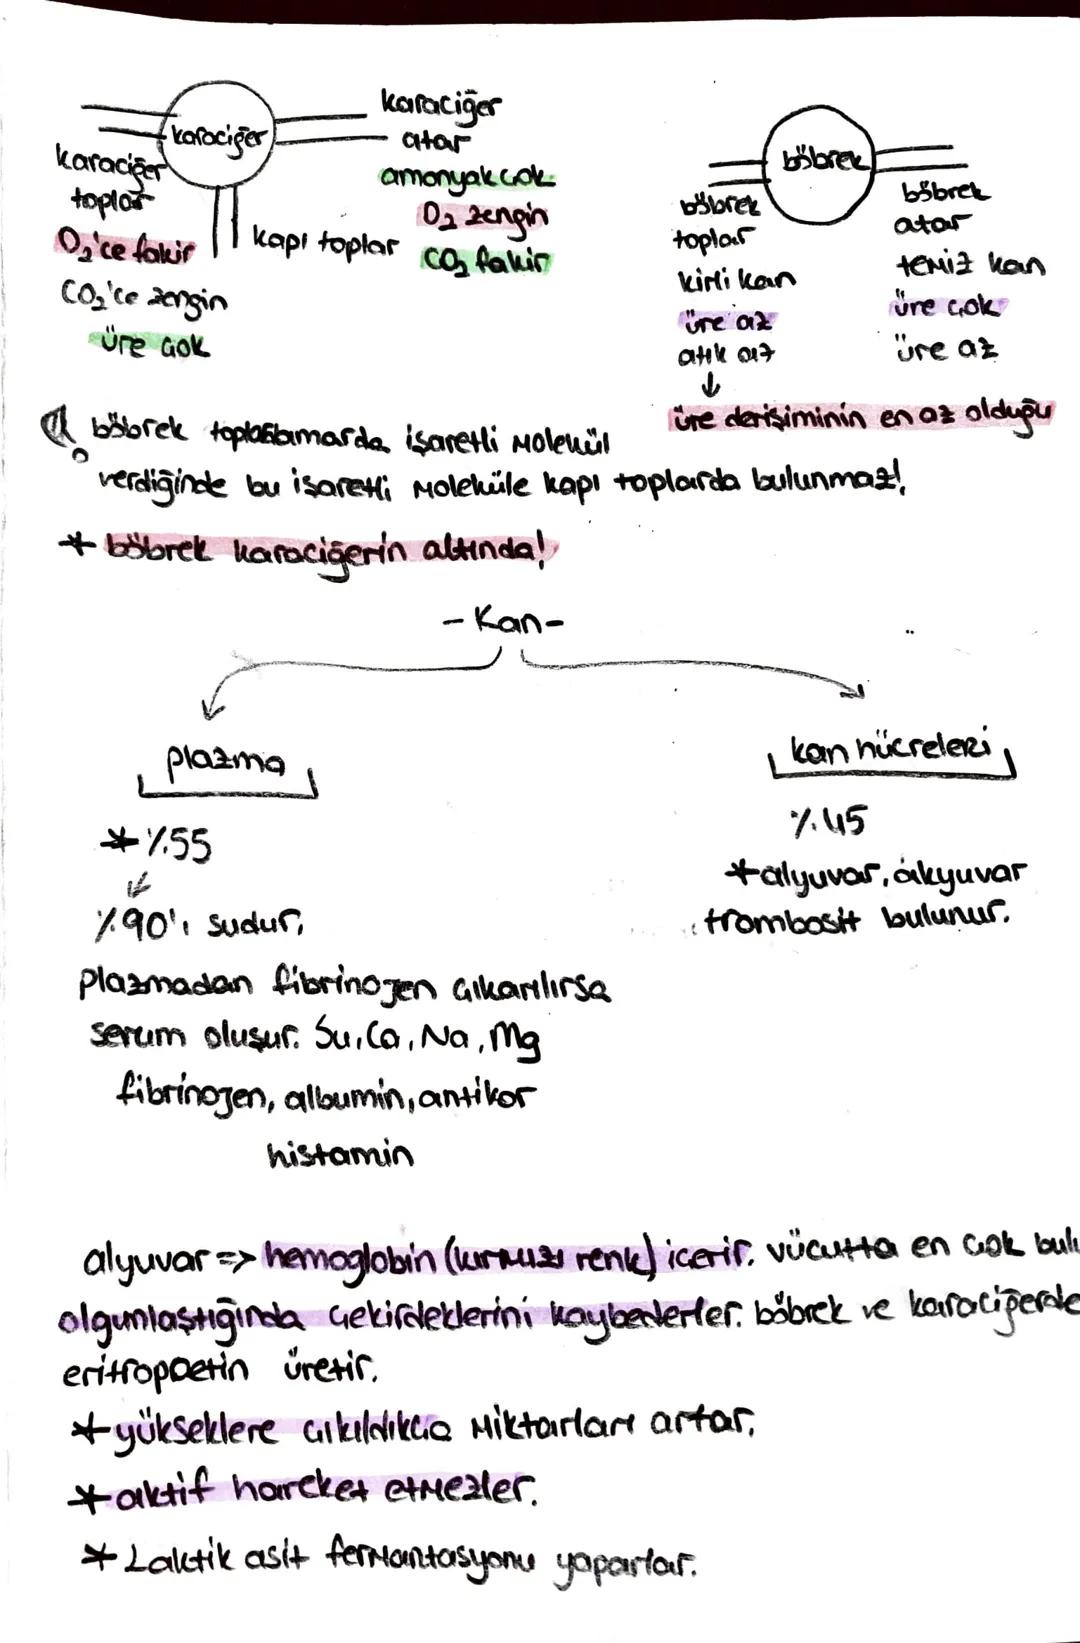 karaciğer
karaciğer
toplar
O₂'ce fakir
CO₂'ce zengin
üre çok
kapı toplar
karaciğer
atar
amonyak çok
O₂ zengin
CO₂ fakir
böbrek
böbrek
toplar
kirli kan
üre az
atık az
↓
üre derişiminin en az olduğu
böbrek
atar
temiz kan
üre çok
üre az
böbrek toplardamarda işaretli molekül
verdiğinde bu işaretli moleküle kapı toplarda bulunmaz!
* böbrek karaciğerin altında!
- Kan -
plazma
* %55
%90'ı sudur,
plazmadan fibrinojen çıkarılırsa
serum oluşur. Su, Ca, Na, Mg
fibrinojen, albumin, antikor
histamin
kan hücreleri
%45
* alyuvar, akyuvar
trombosit bulunur.
alyuvar => hemoglobin (kırmızı renk) içerir. vücutta en çok bulu
olgunlaştığında çekirdeklerini kaybederler. böbrek ve karaciğerde
eritropoetin üretir.
* yükseklere çıkıldıkça miktarları artar,
* aktif hareket etmezler.
* Laktik asit fermantasyonu yaparlar.